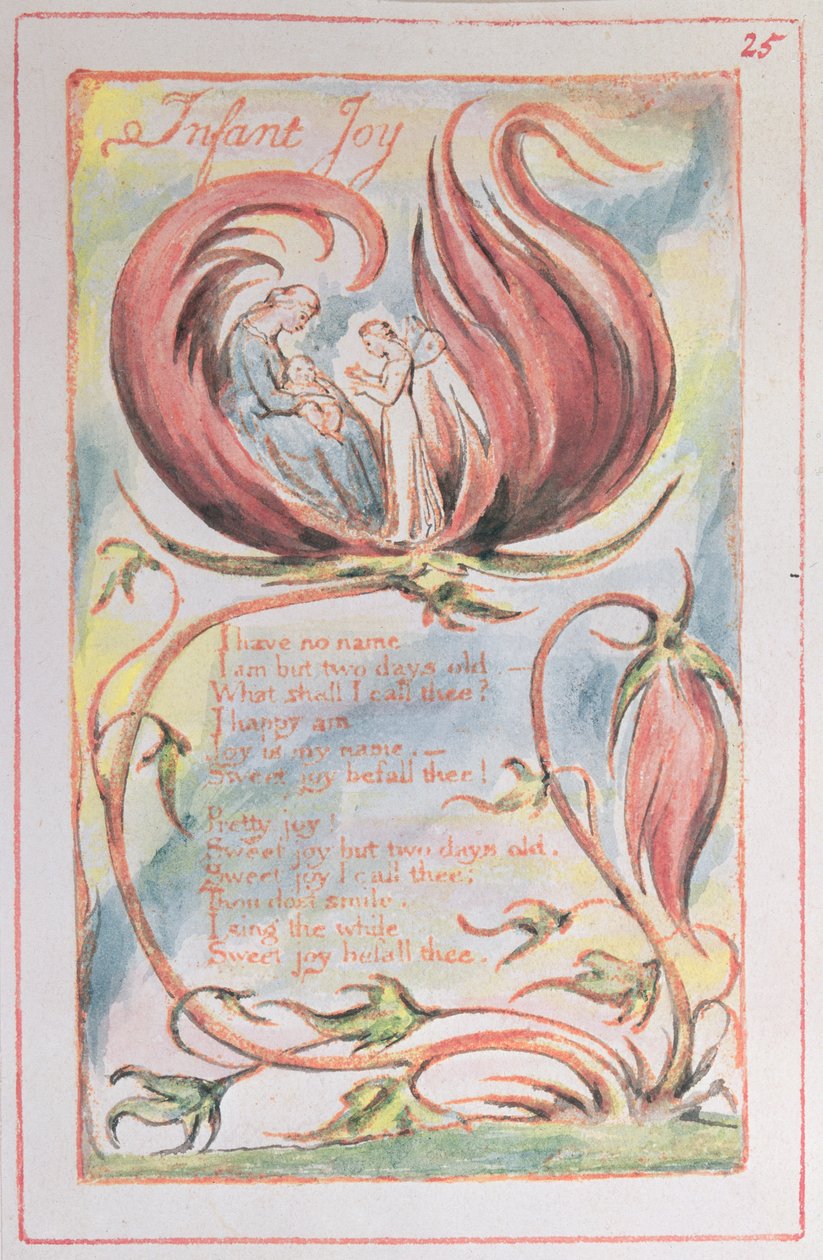 25
Infant Joy
I have no name
I am but two days old.—
What shall I call thee?
I happy am
Joy is my name.—
Sweet joy befall thee!
Pretty joy!
Sweet joy but two days old.
Sweet joy I call thee;
Thou dost smile.
I sing the while
Sweet joy befall thee.